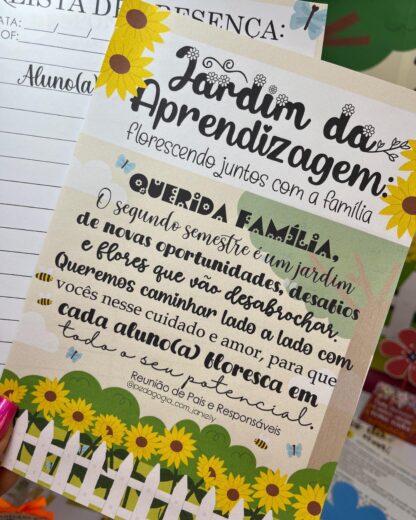 LISTA DE PRESENÇA:
DATA: __/__/__
PROF:
Aluno(a)
Jardim da
Aprendizagem:
florescendo juntos com a família
QUERIDA FAMÍLIA,
O segundo semestre é um jardim
de novas oportunidades, desafios
e flores que vão desabrochar.
Queremos caminhar lado a lado com
vocês nesse cuidado e amor, para que
cada aluno(a) floresca em
todo o seu potencial.
Reunião de Pais e Responsáveis
@pedagogia_com_janiely